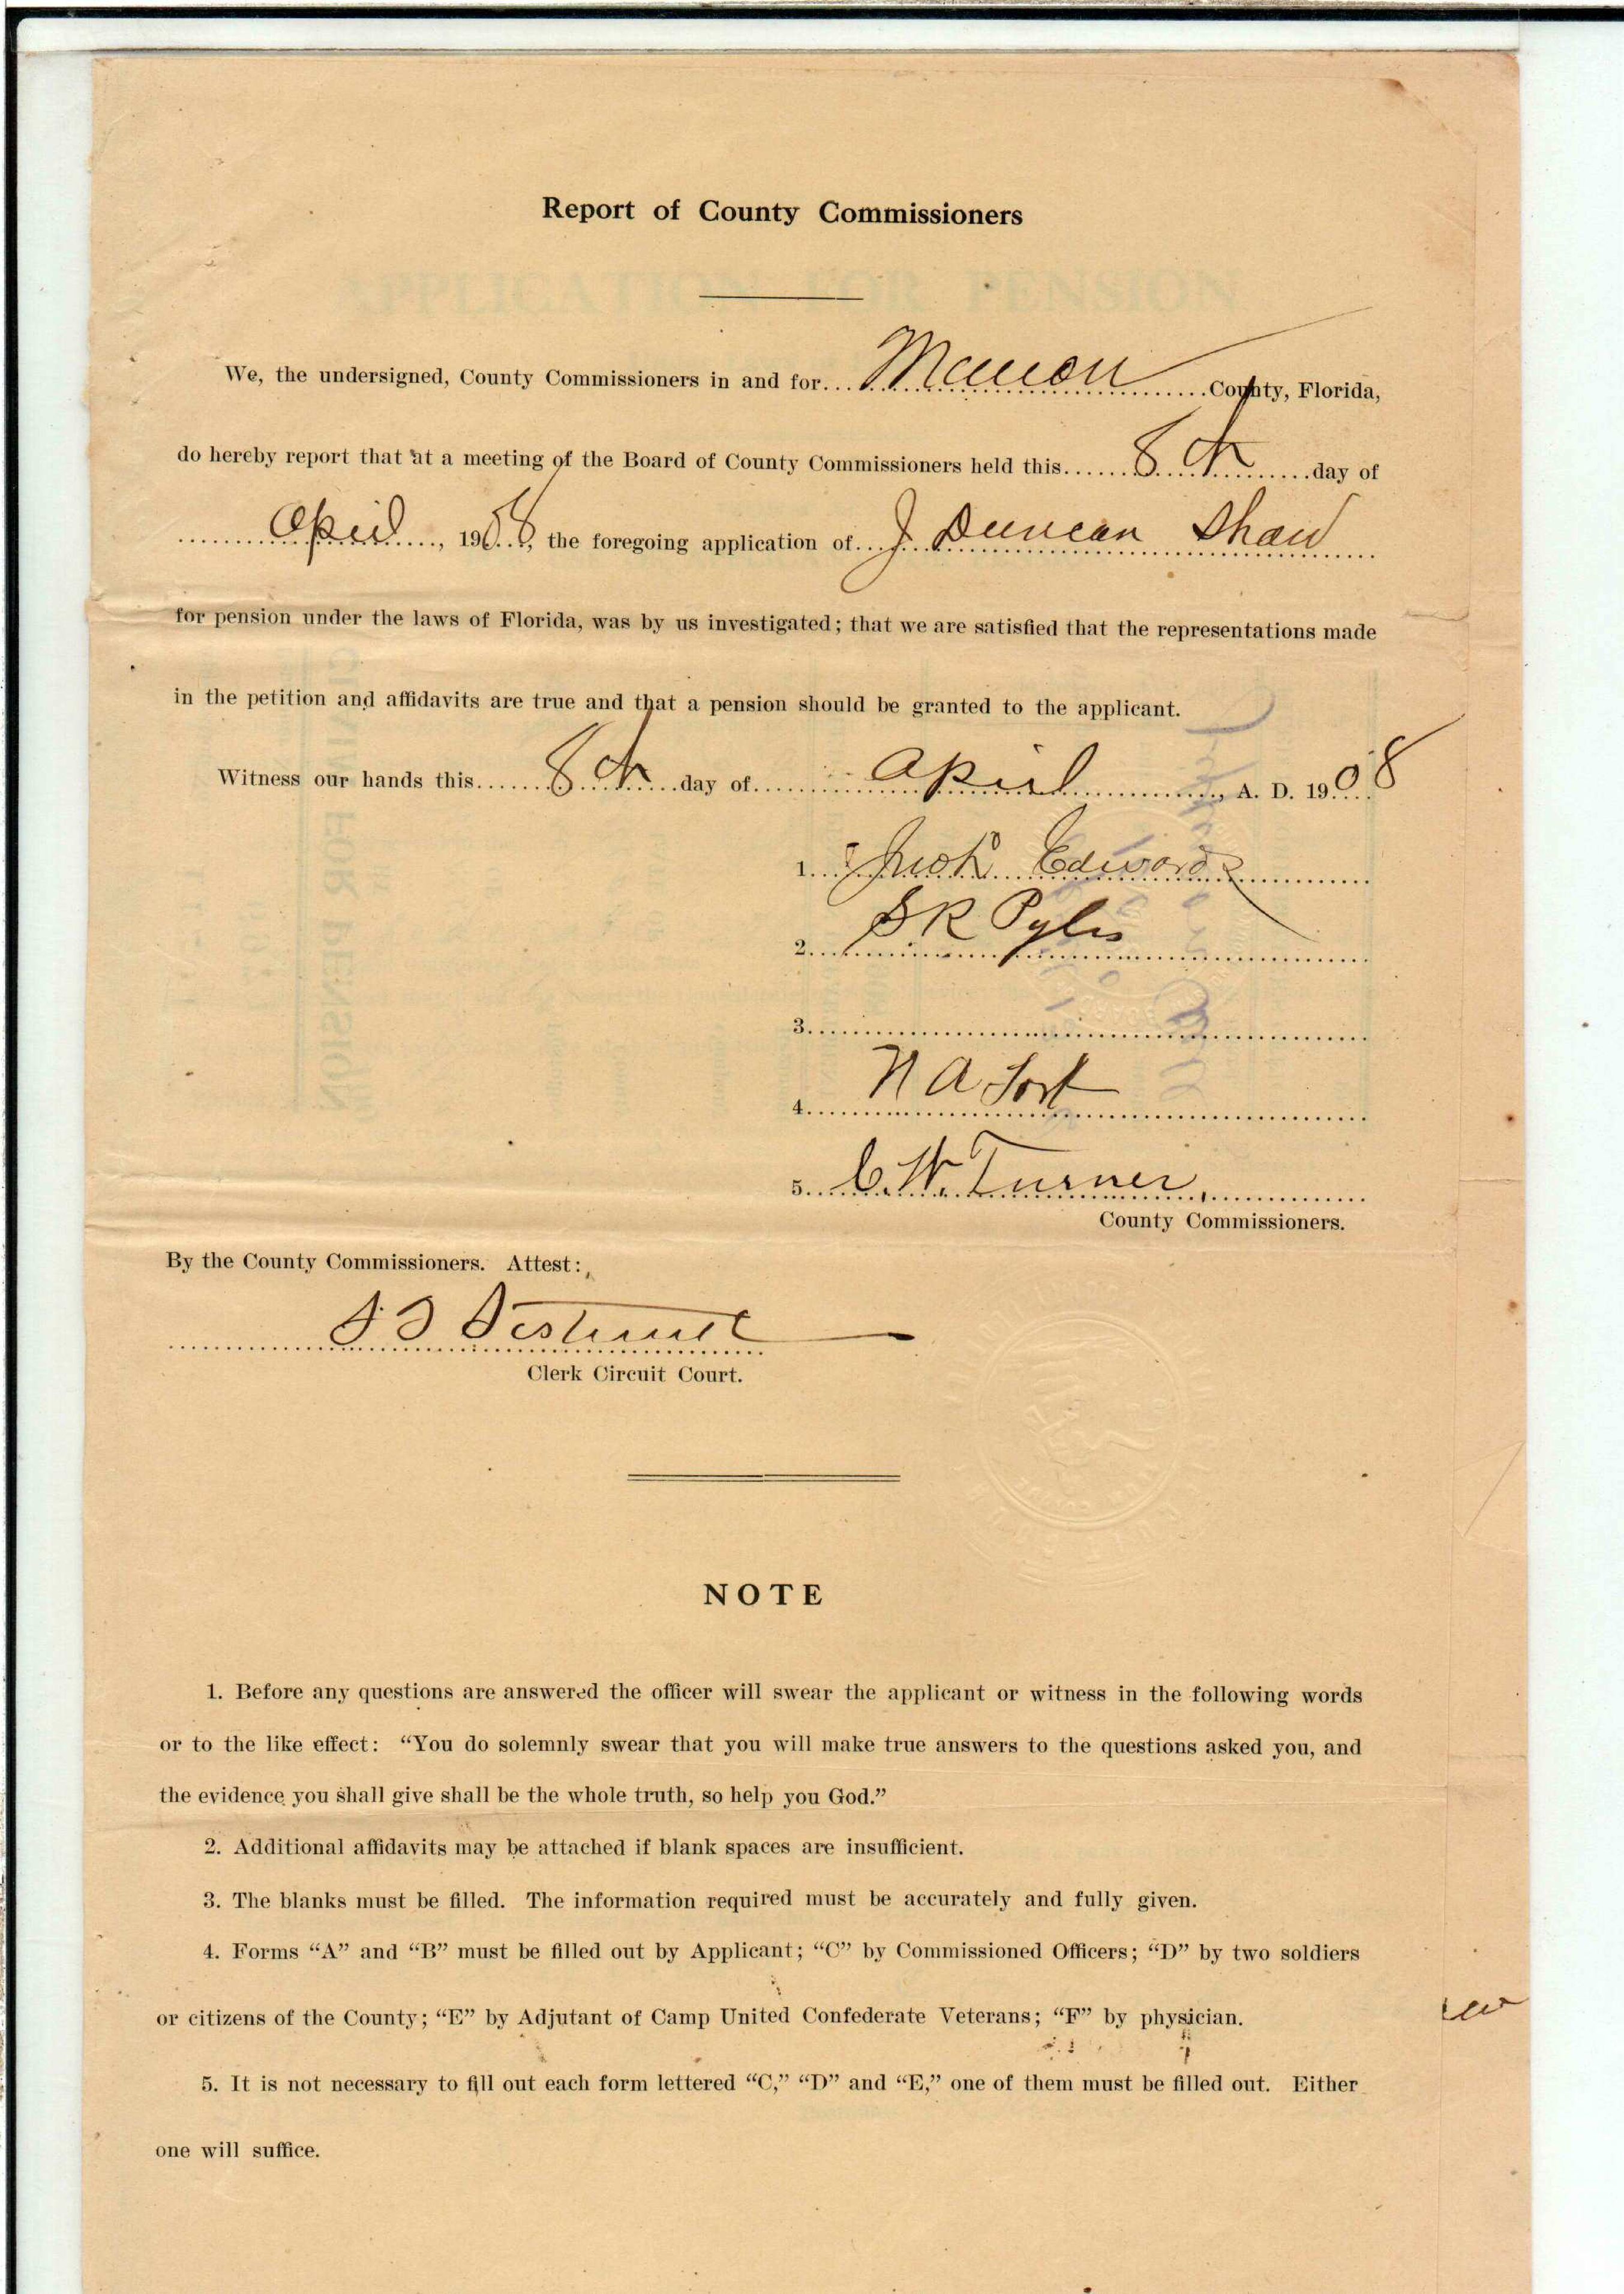 Report of County Commissioners
We, the undersigned, County Commissioners in and for Marion County, Florida,
do hereby report that at a meeting of the Board of County Commissioners held this 8th day of
April, 1908, the foregoing application of J Duncan Shaw
for pension under the laws of Florida, was by us investigated; that we are satisfied that the representations made
in the petition and affidavits are true and that a pension should be granted to the applicant.
Witness our hands this 8th day of April A. D. 1908
1. Edwards
2. S R Pyles
3.
4. N A Fort
5. C. W. Turner,
County Commissioners.
By the County Commissioners. Attest:
Clerk Circuit Court.
NOTE
1. Before any questions are answered the officer will swear the applicant or witness in the following words
or to the like effect: “You do solemnly swear that you will make true answers to the questions asked you, and
the evidence you shall give shall be the whole truth, so help you God.”
2. Additional affidavits may be attached if blank spaces are insufficient.
3. The blanks must be filled. The information required must be accurately and fully given.
4. Forms “A” and “B” must be filled out by Applicant; “C” by Commissioned Officers; “D” by two soldiers
or citizens of the County; “E” by Adjutant of Camp United Confederate Veterans; “F” by physician.
5. It is not necessary to fill out each form lettered “C,” “D” and “E,” one of them must be filled out. Either
one will suffice.